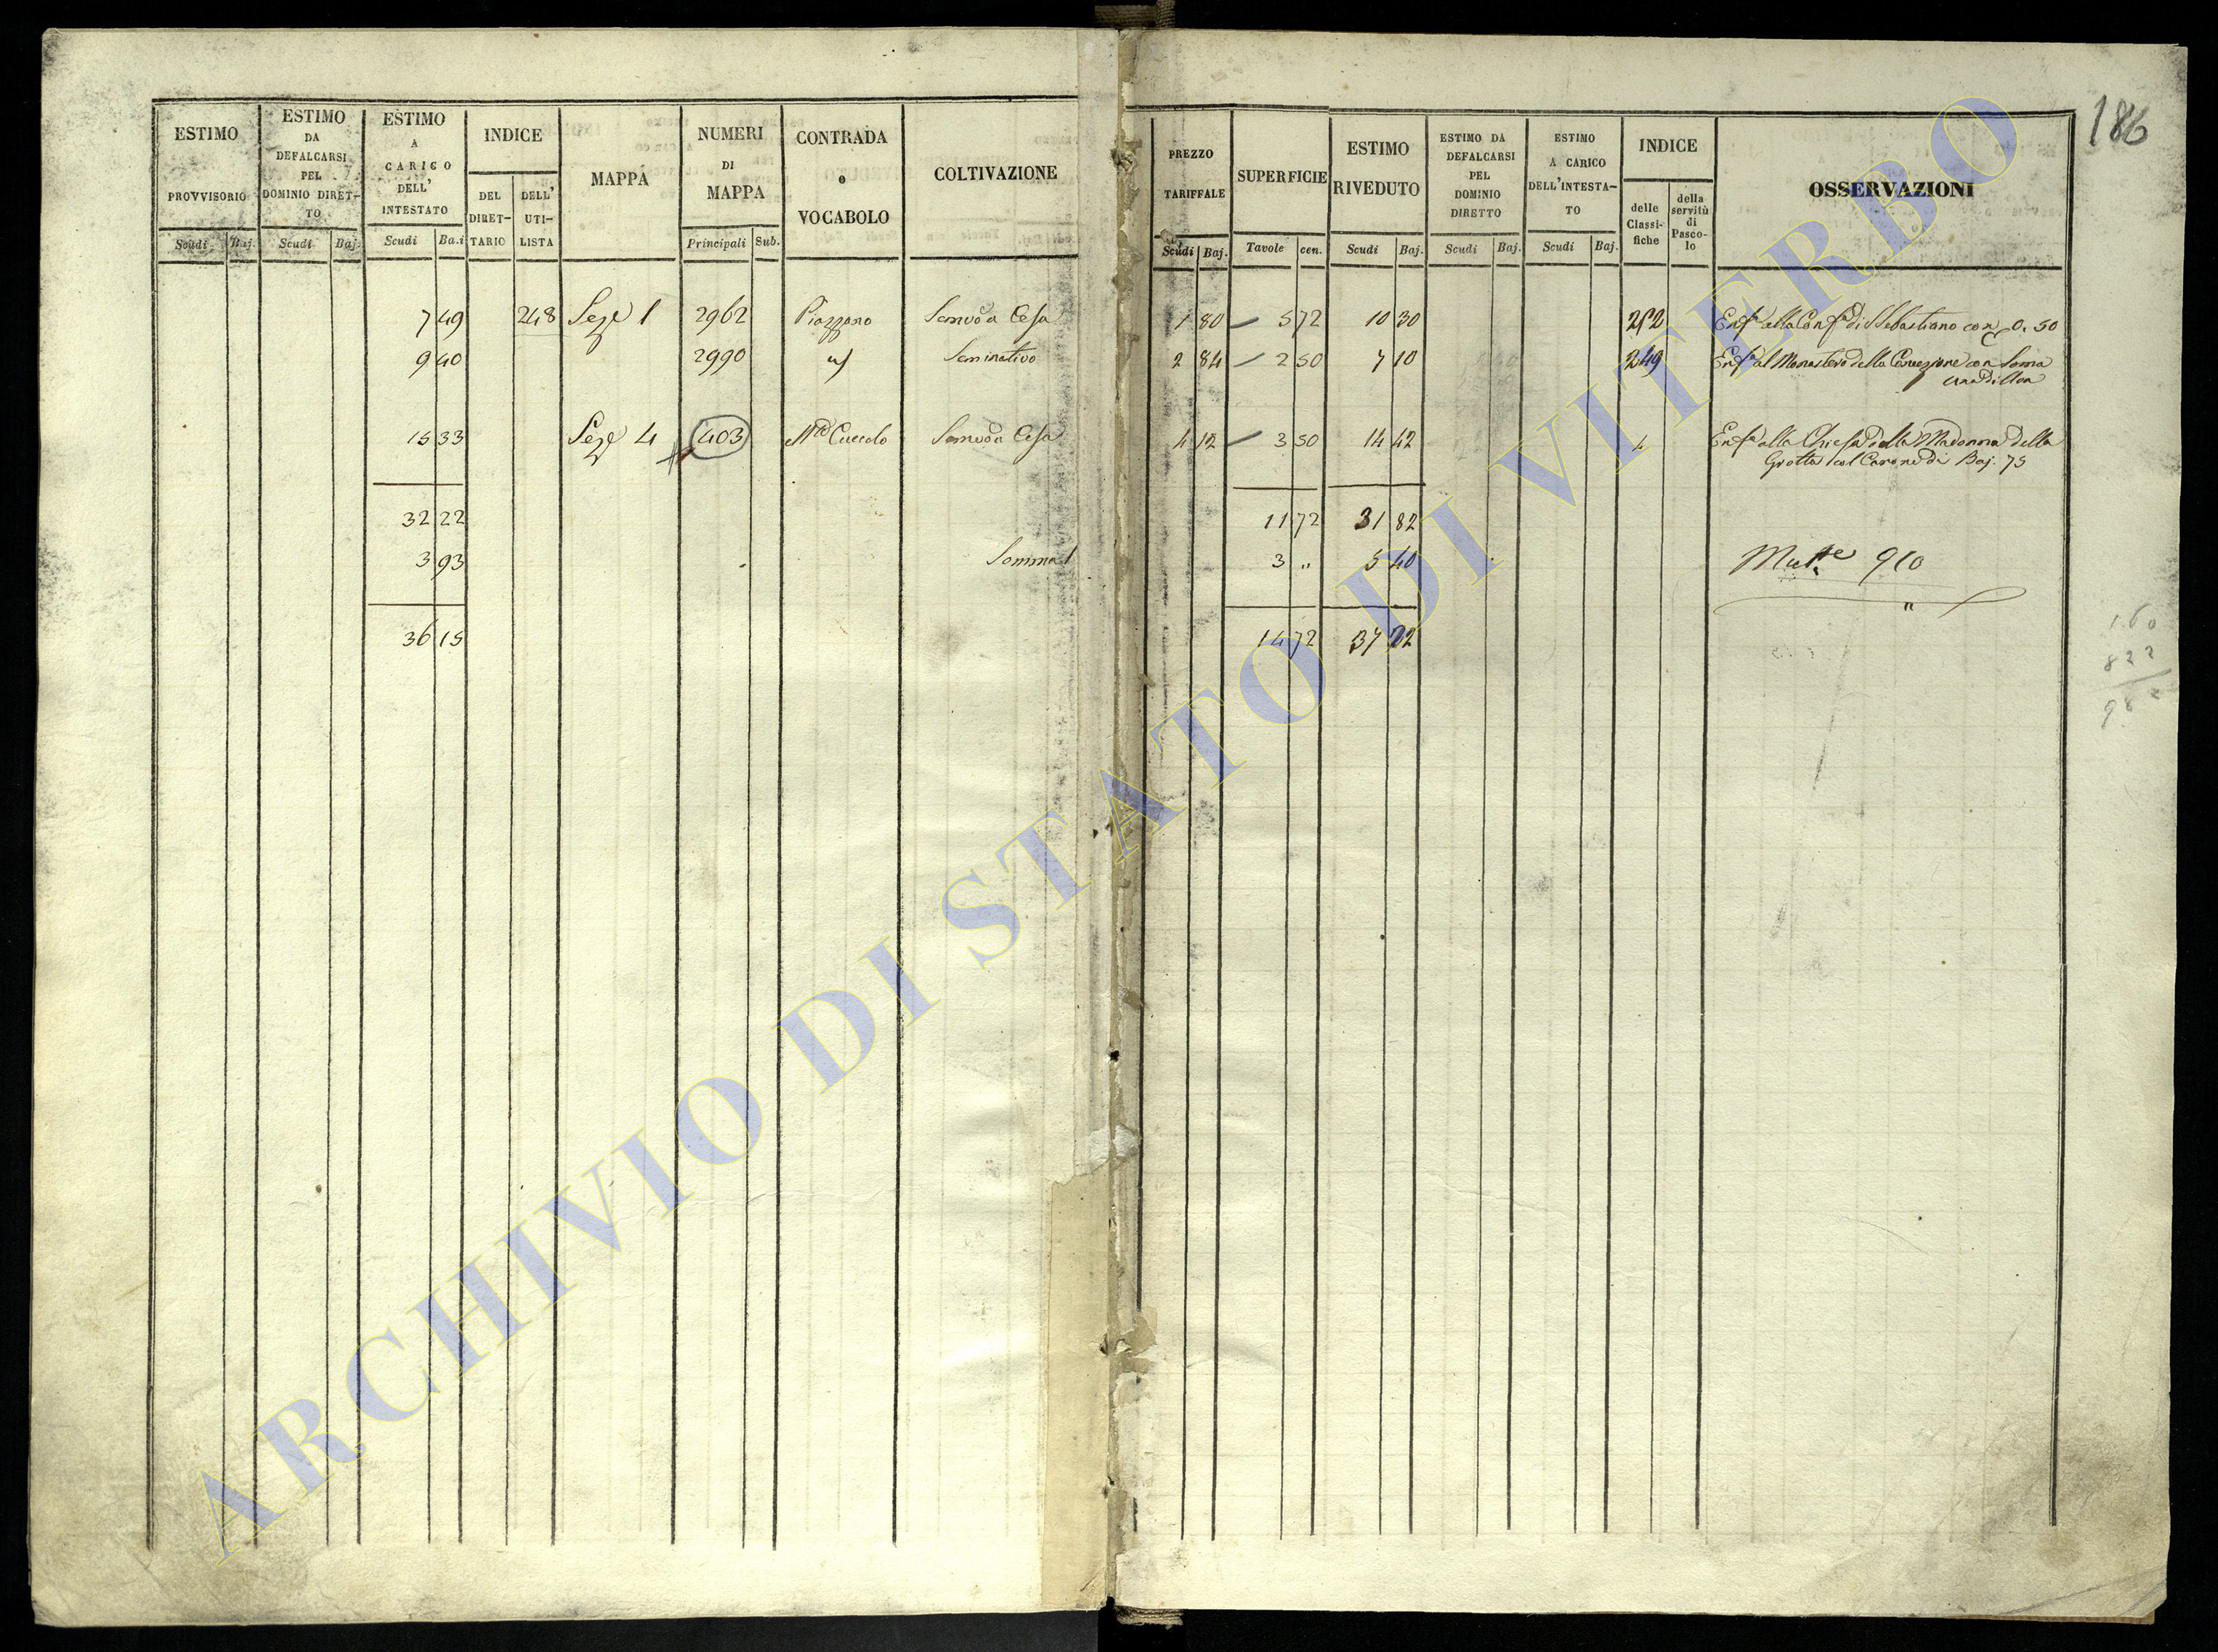 186
ESTIMO PROVVISORIO Scudi Baj.
ESTIMO DA DEFALCARSI PEL DOMINIO DIRET-TO Scudi Baj.
ESTIMO A CARICO DELL' INTESTATO Scudi Ba.i
INDICE DEL DIRET-TARIO DELL' UTI-LISTA
MAPPA
NUMERI DI MAPPA Principali Sub.
CONTRADA o VOCABOLO
COLTIVAZIONE
PREZZO TARIFFALE Scudi Baj.
SUPERFICIE Tavole cen.
ESTIMO RIVEDUTO Scudi Baj.
ESTIMO DA DEFALCARSI PEL DOMINIO DIRETTO Scudi Baj.
ESTIMO A CARICO DELL'INTESTA-TO Scudi Baj.
INDICE delle Classi-fiche della servitù di Pasco-lo
OSSERVAZIONI
7 49 248 Sezе 1 2962 Piazzano 1 80 5 72 10 30 252 Enfa alla Confa di S Sebastiano con 0. 50
9 40 2990 Seminativo 2 84 2 50 7 10 249 Enfa al Monastero della Concezione con Soma
una di
15 33 Seze 4 403 Cuccolo 4 12 3 50 14 42 4 Enfa alla Chiesa della Madonna della
Grotta col Canone di Baj. 75
32 22 11 72 31 82
3 93 Somma 3 " 5 40 910
"
36 15 14 72 37 22
160
822
982
ARCHIVIO DI STATO DI VITERBO